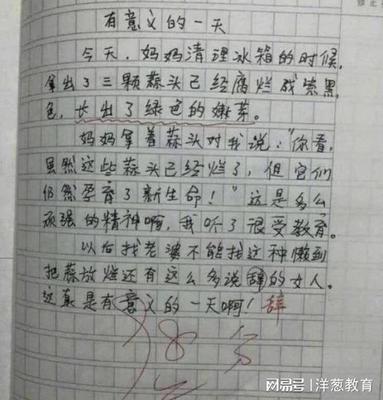 有意义的一天
今天，妈妈清理冰箱的时候，
拿出了三颗蒜头已经腐烂成紫黑
色，长出了绿色的嫩芽。
妈妈拿着蒜头对我说："你看，
虽然这些蒜头已经烂了，但它们
仍然孕育了新生命！"这是多么
顽强的精神啊，我听了很受教育。
以后找老婆不能找这种懒到
把蒜放烂还有这么多说辞的女人。
这真是有意义的一天啊！辞
8分
网易号 | 洋葱教育